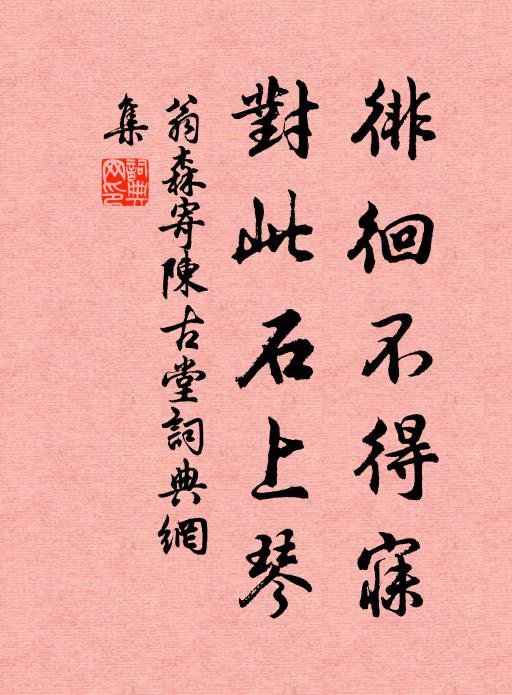 徘徊不得寐
對此石上琴
翁森寄陳古堂詞典網
集
詞典網印